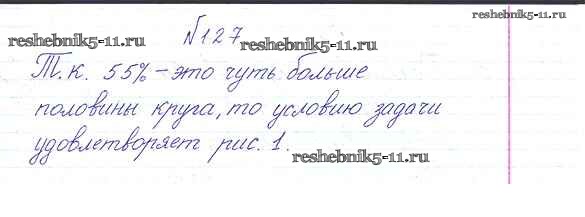 reshebnik5-11.ru
reshebnik5-11.ru №127 reshebnik5-11.ru
Т.к. 55% – это чуть больше
половины круга, то условию задачи
удовлетворяет рис. 1.
reshebnik5-11.ru